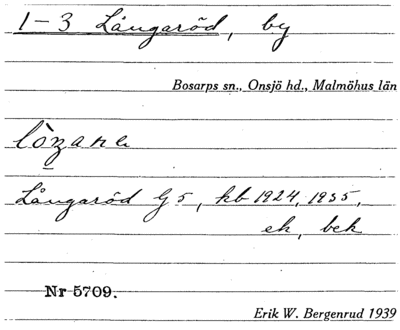 1-3 Långaröd, by
Bosarps sn., Onsjö hd., Malmöhus län
lòzana
Långaröd G 5, kb 1924, 1935,
ek, bek
Nr 5709.
Erik W. Bergenrud 1939